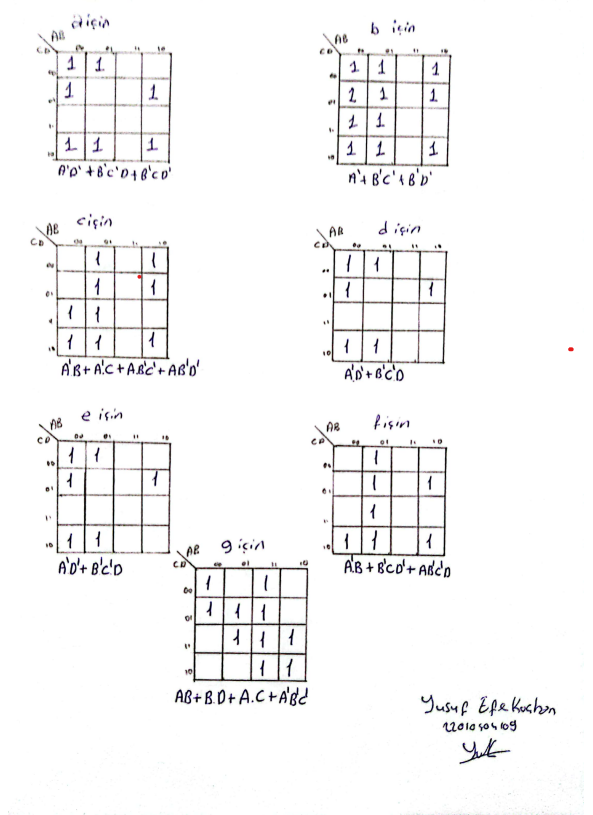 a için
AB
CD 00 01 11 10
00 1 1
01 1 1
11
10 1 1 1
A'D' + B'C'D + B'CD'
b için
AB
CD 00 01 11 10
00 1 1 1
01 1 1 1
11 1 1
10 1 1 1
A' + B'C' + B'D'
c için
AB
CD 00 01 11 10
00 1 1
01 1 1
11 1 1
10 1 1 1
A'B + A'C + AB'C' + AB'D'
d için
AB
CD 00 01 11 10
00 1 1
01 1 1
11
10 1 1
A'D' + B'C'D
e için
AB
CD 00 01 11 10
00 1 1
01 1 1
11
10 1 1
A'D' + B'C'D
f için
AB
CD 00 01 11 10
00 1
01 1 1
11 1
10 1 1 1
A'B + B'CD' + AB'C'D
g için
AB
CD 00 01 11 10
00 1 1
01 1 1 1
11 1 1 1
10 1 1
AB + B.D + A.C + A'B'C'
Yusuf Efe